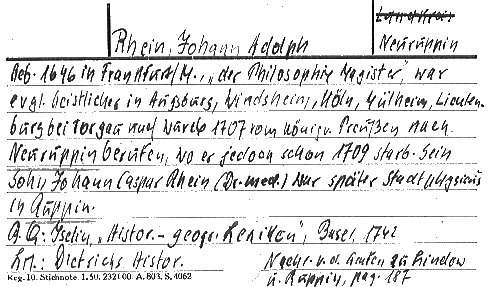 Landkreis
Rhein, Johann Adolph Neuruppin
Geb. 1646 in Frankfurt/M., „der Philosophie Magister", war
evgl. Geistlicher in Augsburg, Windsheim, Köln, Mülheim, Lichten-
burg bei Torgau und wurde 1707 vom König v. Preußen nach
Neuruppin berufen, wo er jedoch schon 1709 starb. Sein
Sohn Johann Caspar Rhein (Dr. med.) war später Stadtphysicus
in Ruppin.
Iselin, „Histor.- geogr. Lexikon", Basel, 1742
Dietrichs Histor. Nachr. v. d. Grafen zu Lindow
Keg. 10. Stichnote. I. 50. 232100. A. 803. S. 4062 u. Ruppin, pag. 187